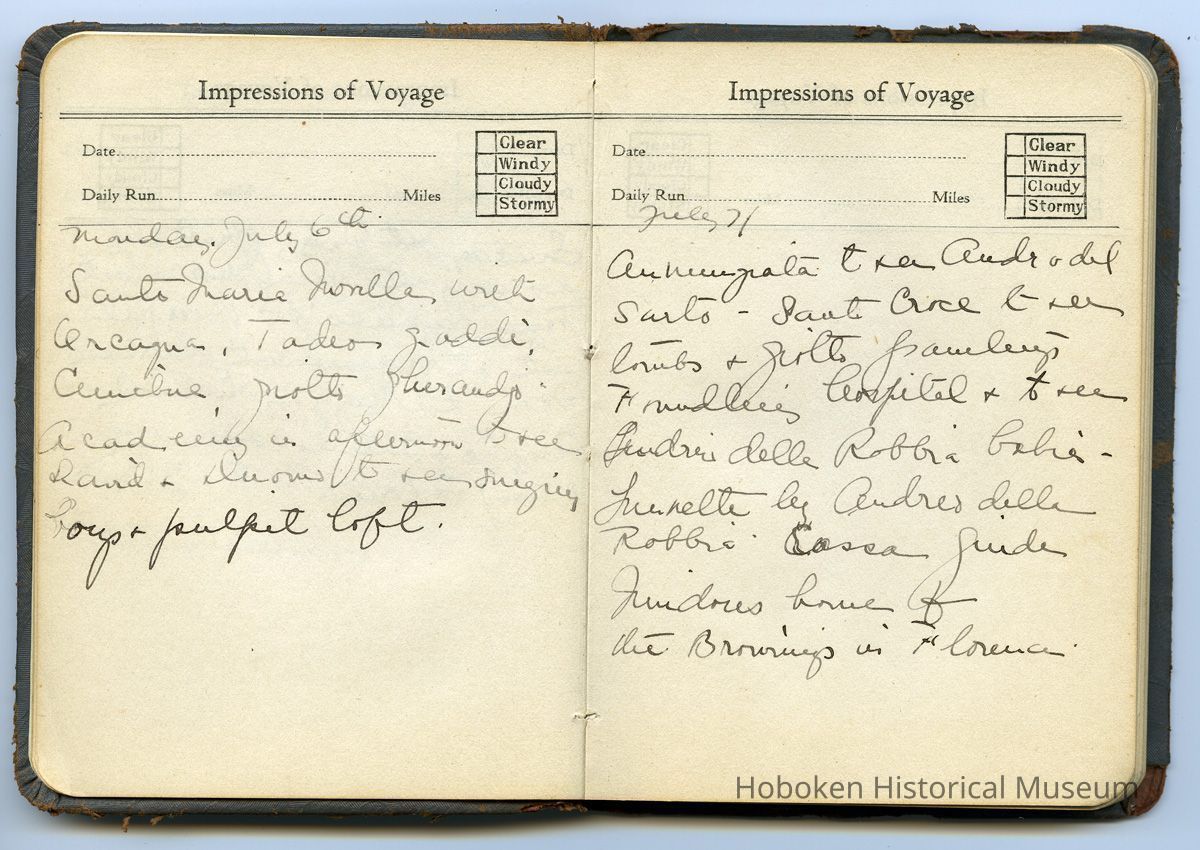 Impressions of Voyage
Date
Clear
Windy
Cloudy
Stormy
Daily Run Miles
Monday, July 6th
Santo Maria Novella with
Orcagna, Tadeo Gaddi,
Cimibue, Giotto Gherando
Academy in afternoon to see
David + Duomo to see singing
boys + pulpit loft.
Impressions of Voyage
Date
Clear
Windy
Cloudy
Stormy
Daily Run Miles
July 7/
Annunziata to see Andro del
Sarto - Santi Croce to see
tombs + Giotto paintings
Foundling Hospital + to see
Andrea della Robbia babies -
Lunette by Andreo della
Robbia Cassa Guide
Windows home of
the Brownings in Florence
Hoboken Historical Museum